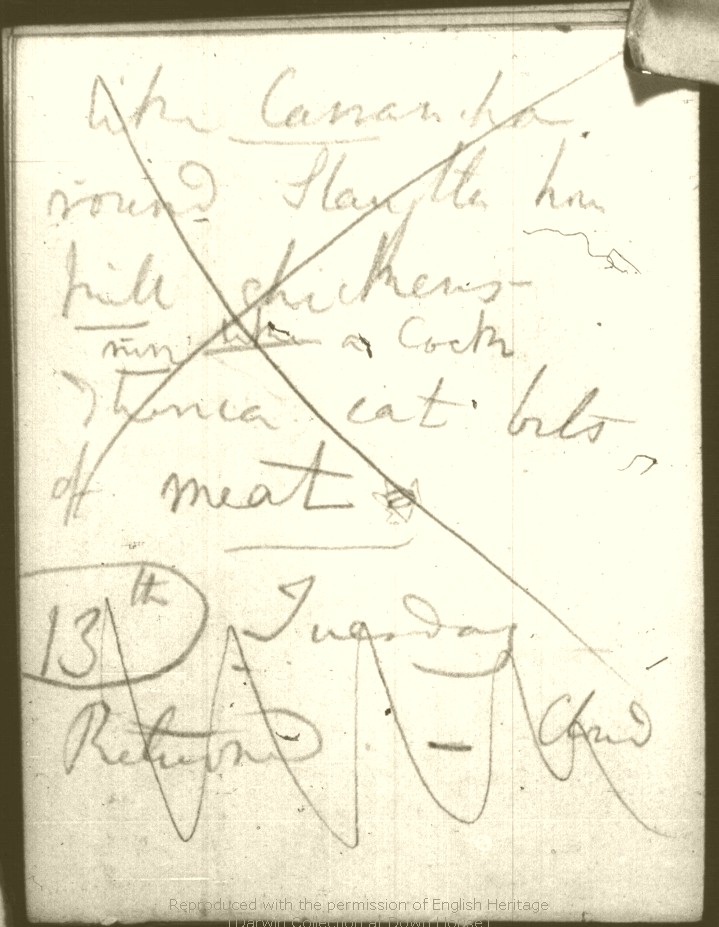 like Carrancha
round Slaughter house
kill chickens
run like a Cock
Thenca eat bits
of meat
13th Tuesday
Returned — Cloud
Reproduced with the permission of English Heritage
(Darwin Collection at Down House)